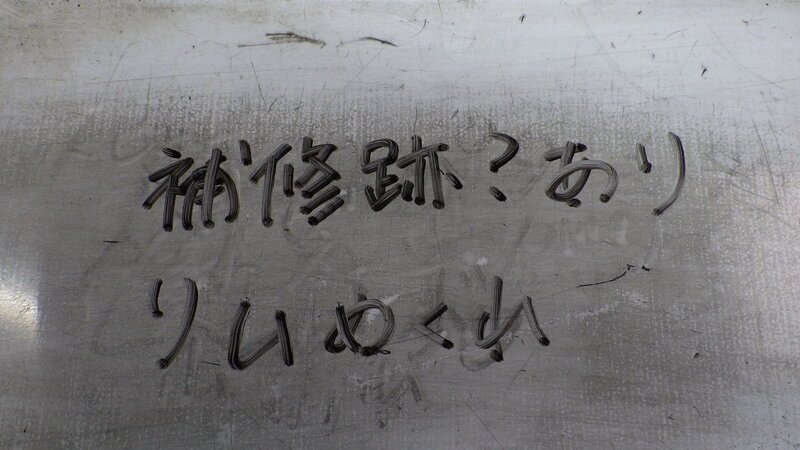 補修跡?あり
リムめくれ